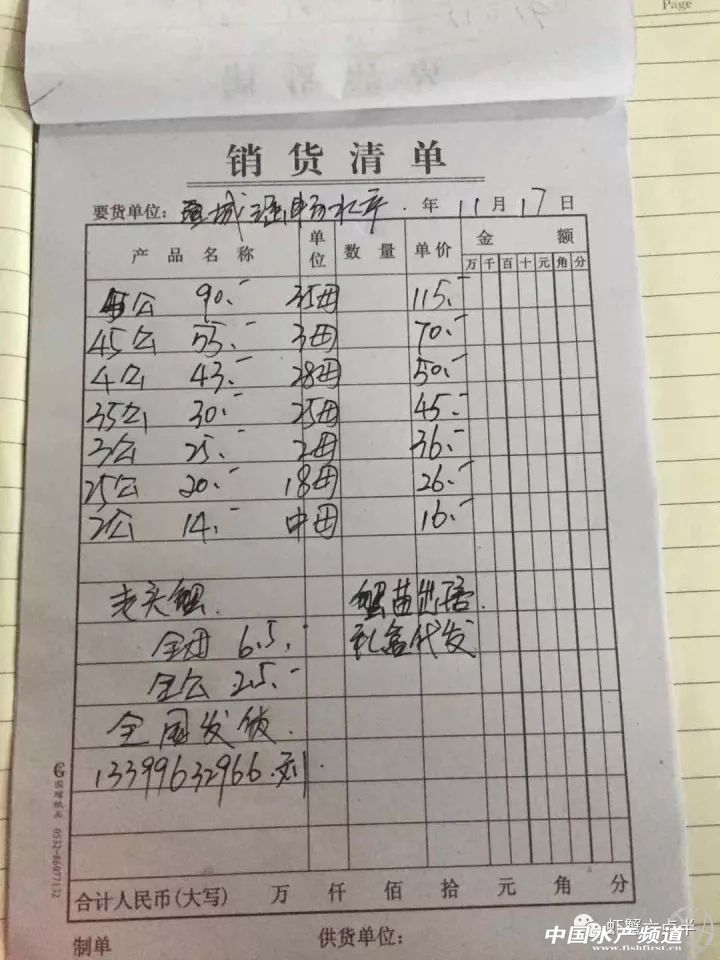 Page
销货清单
要货单位: 盐城 水产. 年 11月17日
产品名称 单位 数量 单价 金额
万千百十元角分
5公 90.- 35母 115.-
45公 55.- 3母 70.-
4公 43.- 28母 50.-
35公 30.- 25母 45.-
3公 25.- 2母 36.-
25公 20.- 18母 26.-
2公 14.- 中母 16.-
老头蟹. 蟹苗出售.
全母 6.5.- 礼盒代发
全公 2.5.-
全国发货.
13399632966.刘
国耀纸品 0532-86077132
合计人民币(大写) 万 仟 佰 拾 元 角 分
制单 供货单位:
虾蟹六点半
中国水产频道
www.fishfirst.cn